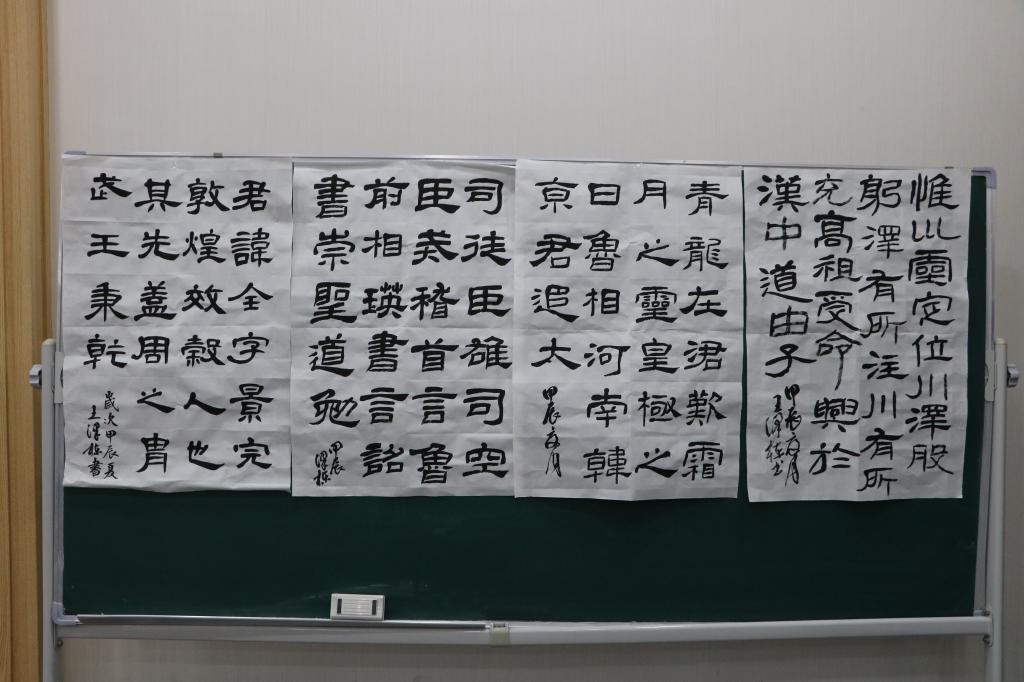 惟巛靈定位川澤股
躬澤有所注川有所
充高祖受命興於
漢中道由子
甲辰夏月
王澤書
青龍在涒歎霜
月之靈皇極之
日魯相河南韓
京君追大
甲辰夏月
司徒臣雄司空
臣戒稽首言魯
前相瑛書言詔
書崇聖道勉
甲辰
澤
君諱全字景完
敦煌效穀人也
其先蓋周之胄
武王秉乾
歲次甲辰夏
王澤書